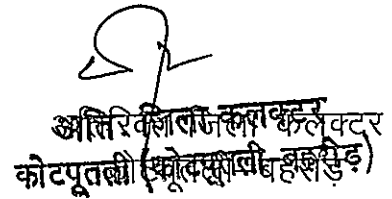 अतिरिक्त जिला कलक्टर
कोटपूतली (कोटपूतली बहरोड़)